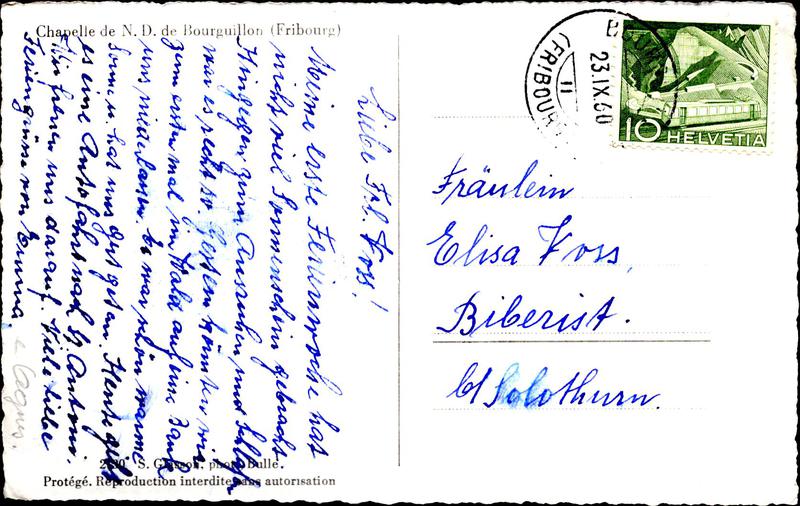 Chapelle de N. D. de Bourguillon (Fribourg)
Liebe Frl. Voss!
Meine erste Ferienwoche hat
nicht viel Sonnenschein gebracht
Hingegen zum Ausruhen und Schlafen
war es recht so. Gestern konnten wir
zum ersten mal im Wald auf eine Bank
uns niederlassen. Es war schön warme
Sonne u. hat uns gut getan. Heute gibt
es eine Autofahrt nach St. Antoni.
Wir freuen uns darauf. Viele liebe
Feriengrüsse von Emma
u Agnes.
S. Glasson, photo Bulle.
Protégé. Reproduction interdite sans autorisation
(FRIBOURG)
23.IX.60
II
10 HELVETIA
Fräulein
Elisa Voss,
Biberist.
b/ Solothurn.